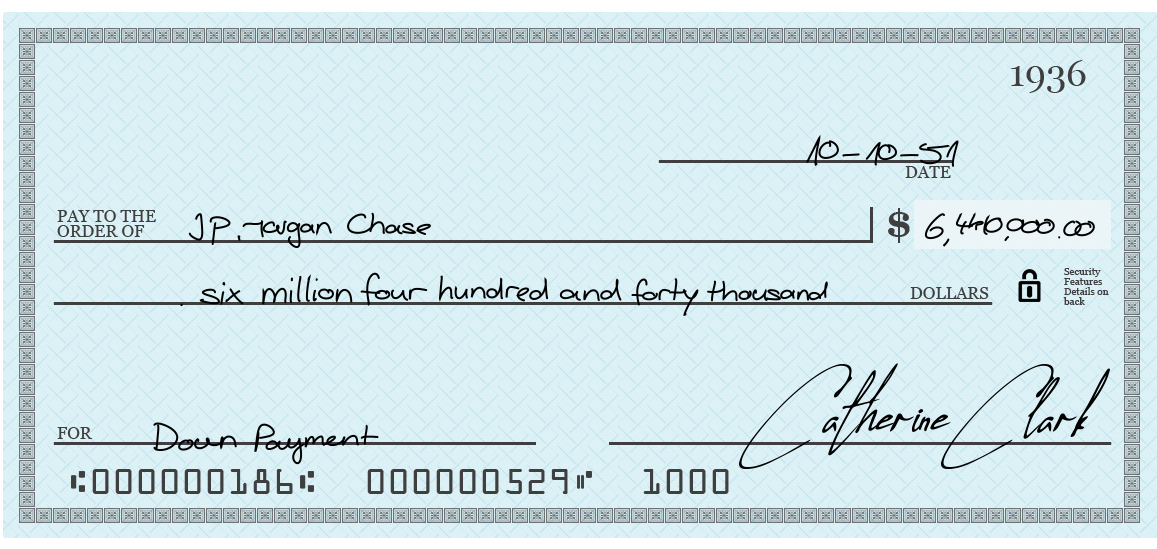 1936
10-10-51
DATE
PAY TO THE
ORDER OF JP Morgan Chase $ 6,440,000.00
six million four hundred and forty thousand DOLLARS
Security
Features
Details on
back
FOR Down Payment Catherine Clark
⑆000000186⑆ 000000529⑈ 1000